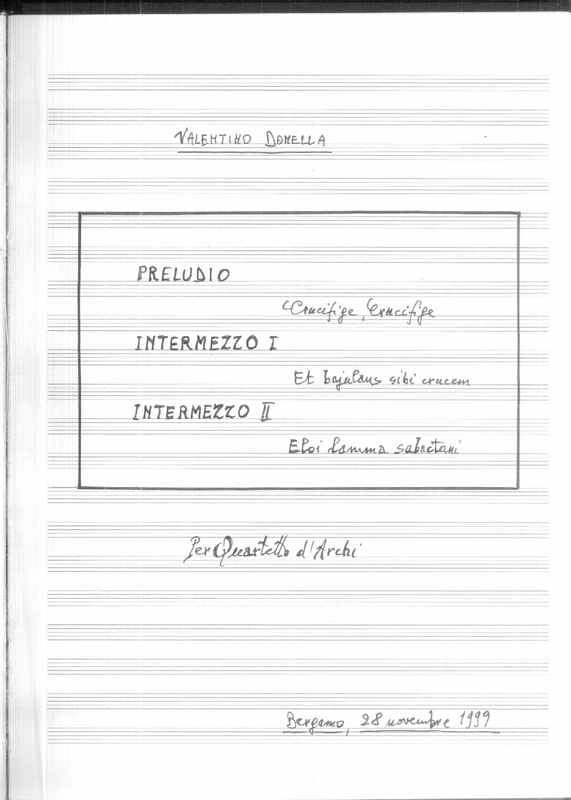 VALENTINO DONELLA
PRELUDIO
Crucifige, Crucifige
INTERMEZZO I
Et bajulans sibi crucem
INTERMEZZO II
Eloi lamma sabactani
Per Quartetto d'Archi
Bergamo, 28 novembre 1999